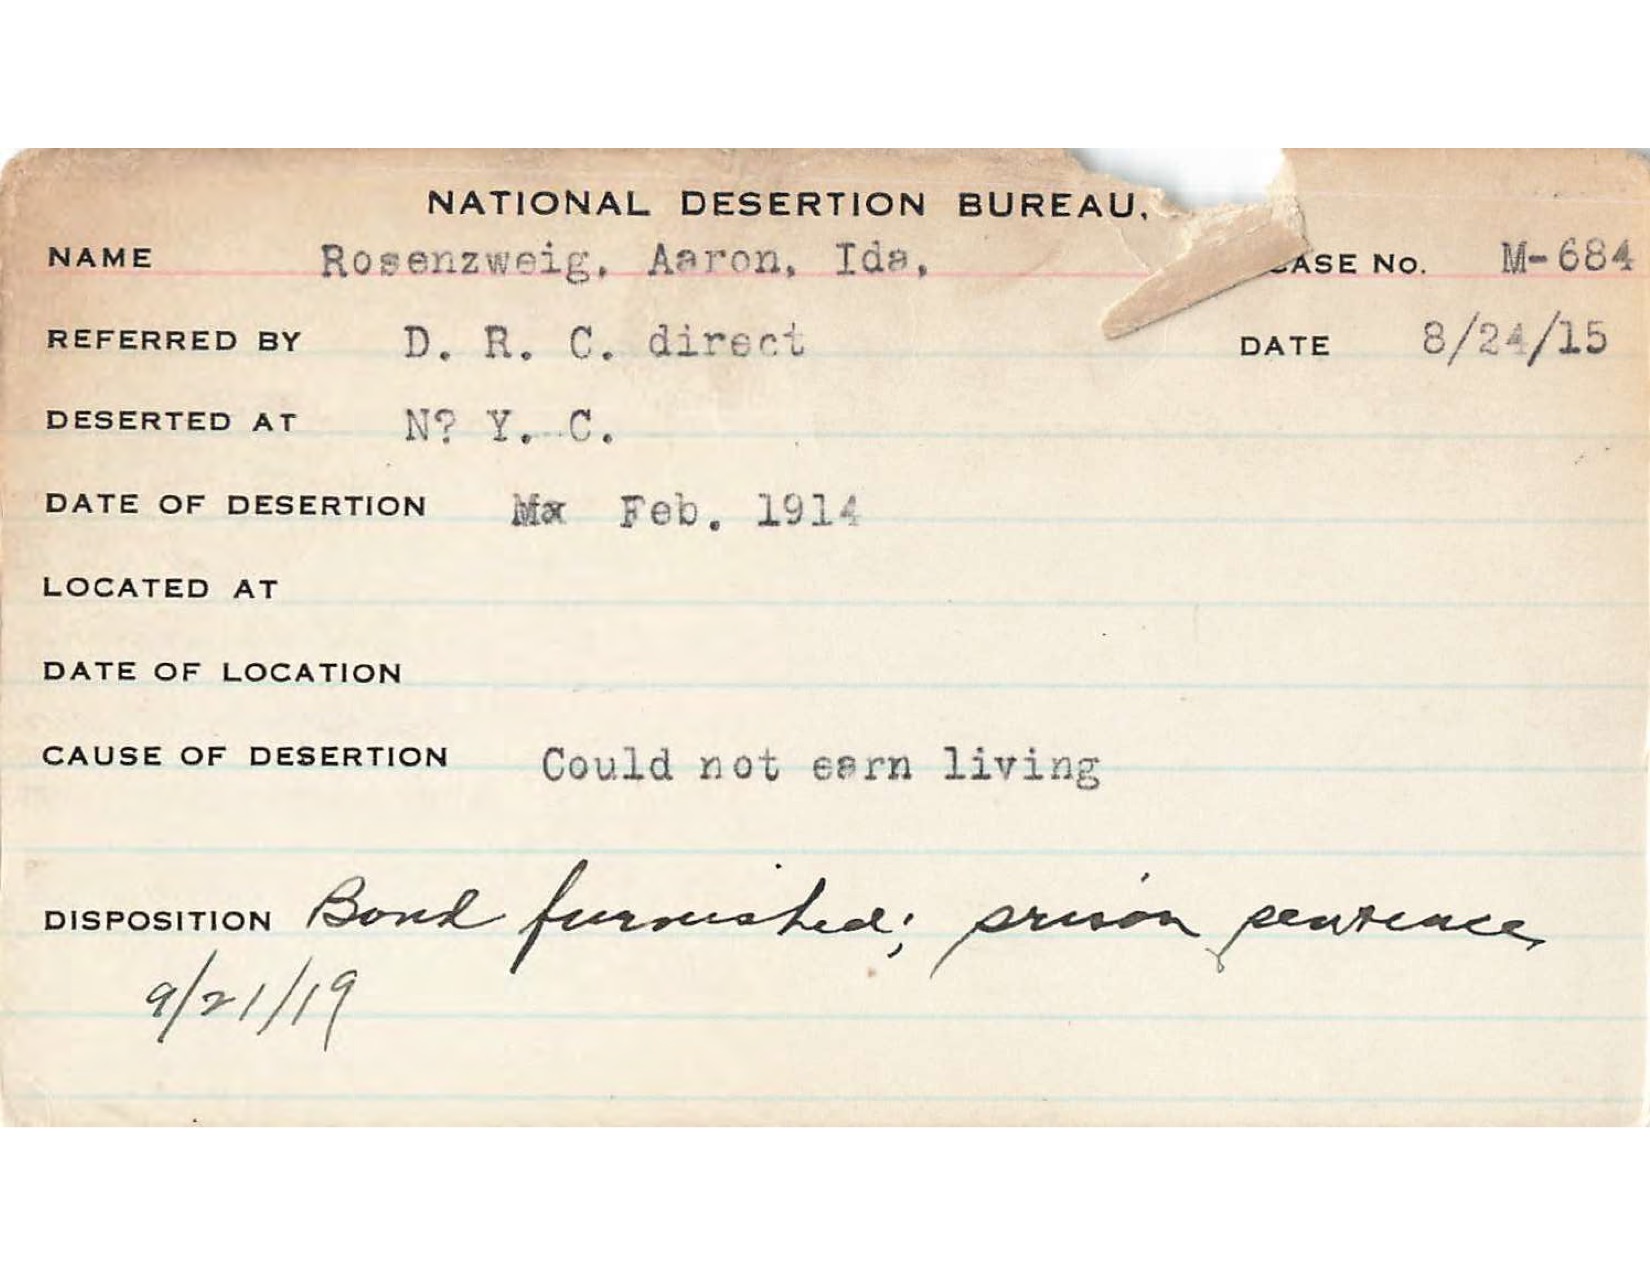 NATIONAL DESERTION BUREAU.
NAME Rosenzweig, Aaron, Ida, CASE No. M-684
REFERRED BY D. R. C. direct DATE 8/24/15
DESERTED AT N? Y. C.
DATE OF DESERTION Mx Feb. 1914
LOCATED AT
DATE OF LOCATION
CAUSE OF DESERTION Could not earn living
DISPOSITION Bond furnished; prison sentence,
9/21/19